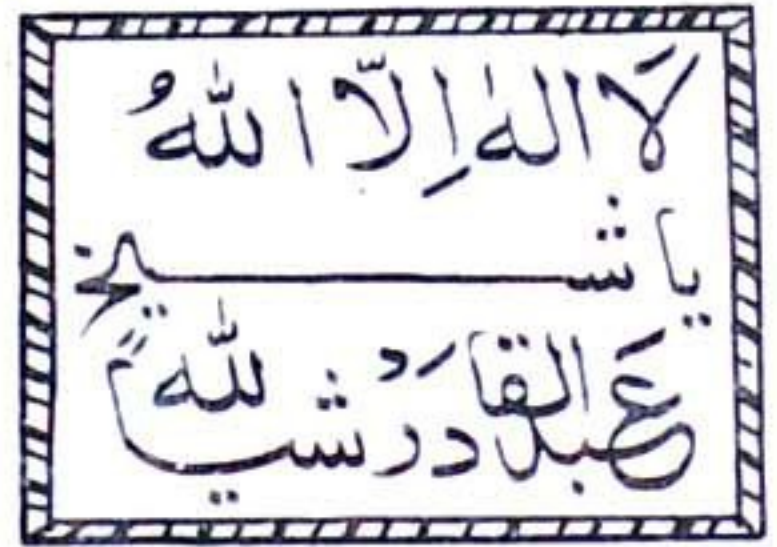 لَا اِلٰهَ اِلَّا اللّٰهُ
یا شیخ
عَبدالقادر شیئاً لِلّٰه